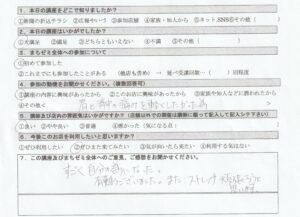 1. 本日の講座をどこで知りましたか？
①新聞の折込チラシ ②広報やいづ ③参加店舗 ④家族・知人から ⑤ネット、SNS ⑥その他（　　）
2. 本日の講座はいかがでしたか？
①大満足 ②満足 ③どちらともいえない ④不満 ⑤その他（　　）
3. まちゼミ全体への参加について
①初めて参加した
②これまでにも参加したことがある （他店も含め） → 延べ受講回数…（　　）回程度
4. 参加の動機をお聞かせください。（複数回答可）
①講座の内容に興味があったから ②このお店に興味があったから ③家族や知人などに薦められたから
④その他く
5. 講師及び店内の雰囲気はいかがですか？
①良い ②やや良い ③普通 ④悪かった（気になる点）
6. 今後このお店を利用したいと思いますか？
①ぜひ利用したい ②ぜひまた来てみたい ③気が向いたら来たい ④利用する気はない
7. この講座及びまちゼミ全体へのご意見、ご感想をお聞かせください。
すごく自分の為になった。
有難うございました。また ストレッチ
思います。